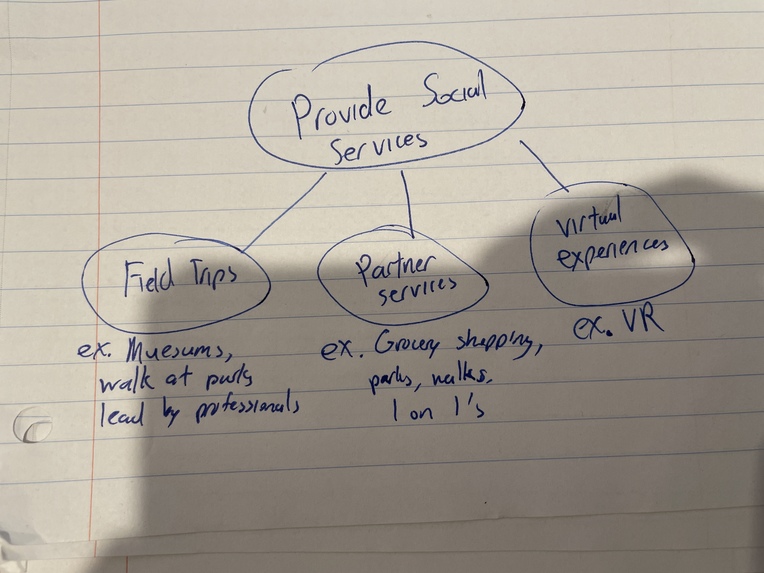 Provide Social
Services
Field Trips
ex. Muesums,
walk at parks
lead by professionals
Partner
services
ex. Grocery shopping,
parks, walks,
1 on 1's
Virtual
experiences
ex. VR